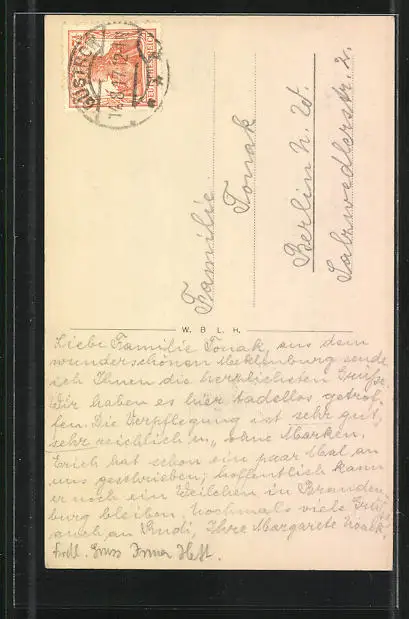 GÜSTROW
14.8.17.12-1N
DEUTSCHES REICH
Familie
Tonak
Berlin N. W.
Salzwedlerstr. 2.
W. B. L. H.
Liebe Familie Tonak, aus dem
wunderschönen Mecklenburg sende
ich Ihnen die herzlichsten Grüße.
Wir haben es hier tadellos getrof-
fen. Die Verpflegung ist sehr gut,
sehr reichlich u. „ohne Marken.
Erich hat schon ein paar Mal an
uns geschrieben; hoffentlich kann
er noch ein Weilchen in Branden-
burg bleiben. Nochmals viele Grüße
auch an Ihre Margarete
Frdl. Gruss